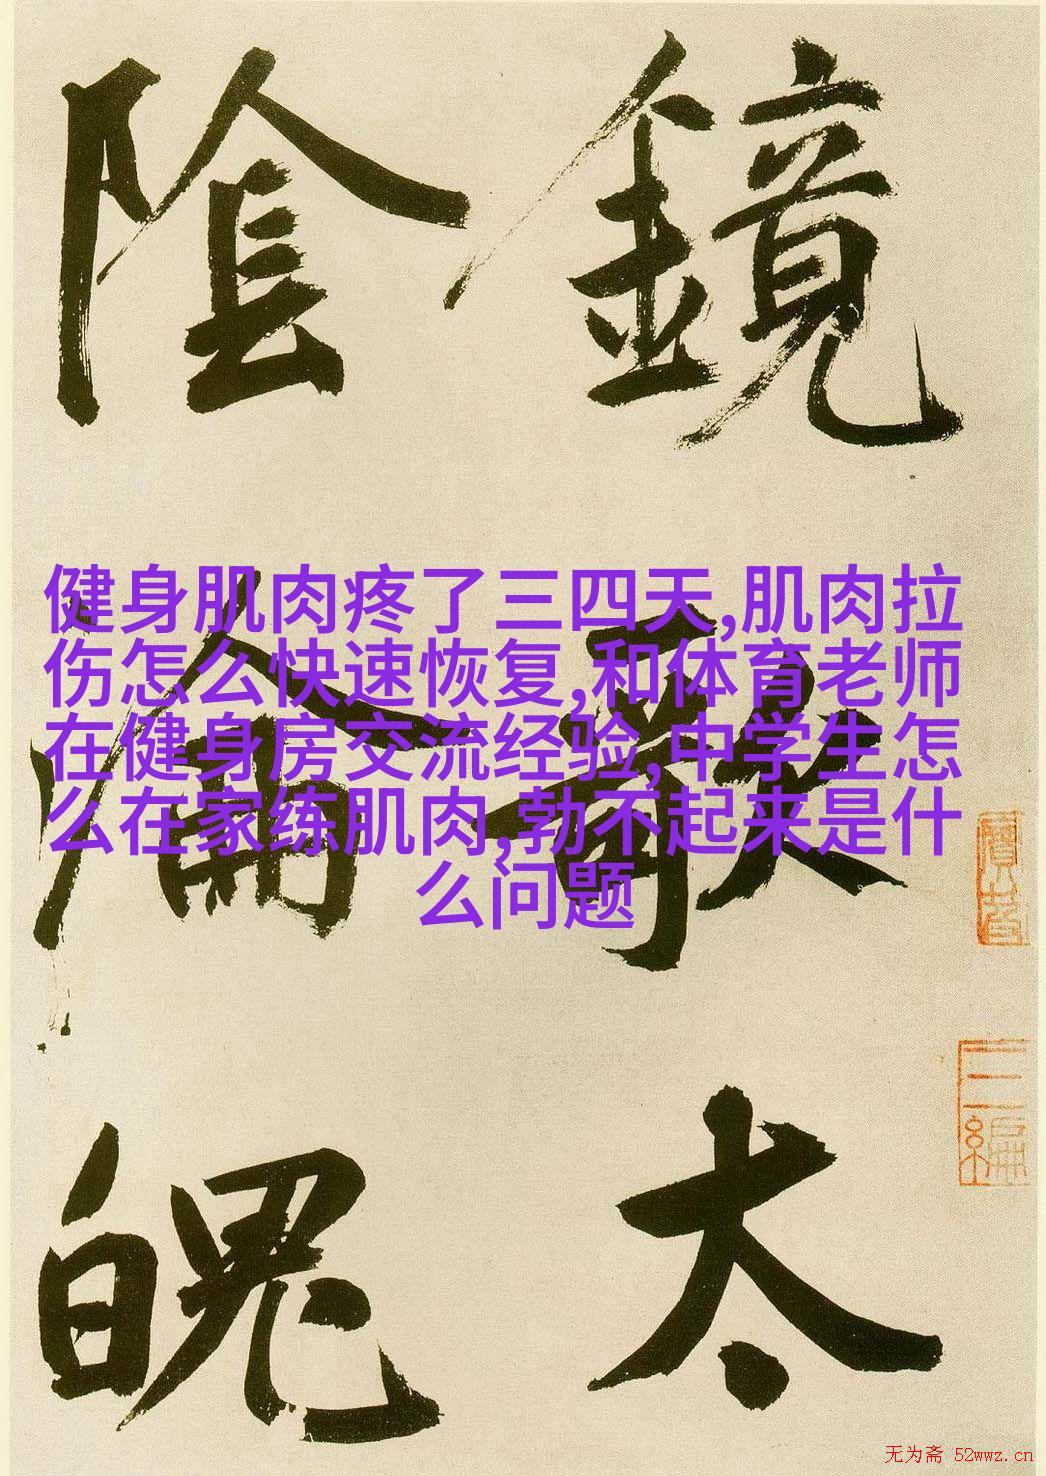 鏡
歌
太
陰
淪
魄
健身肌肉疼了三四天,肌肉拉
伤怎么快速恢复,和体育老师
在健身房交流经验,中学生怎
么在家练肌肉,勃不起来是什
么问题
无为斋 52wwz.cn